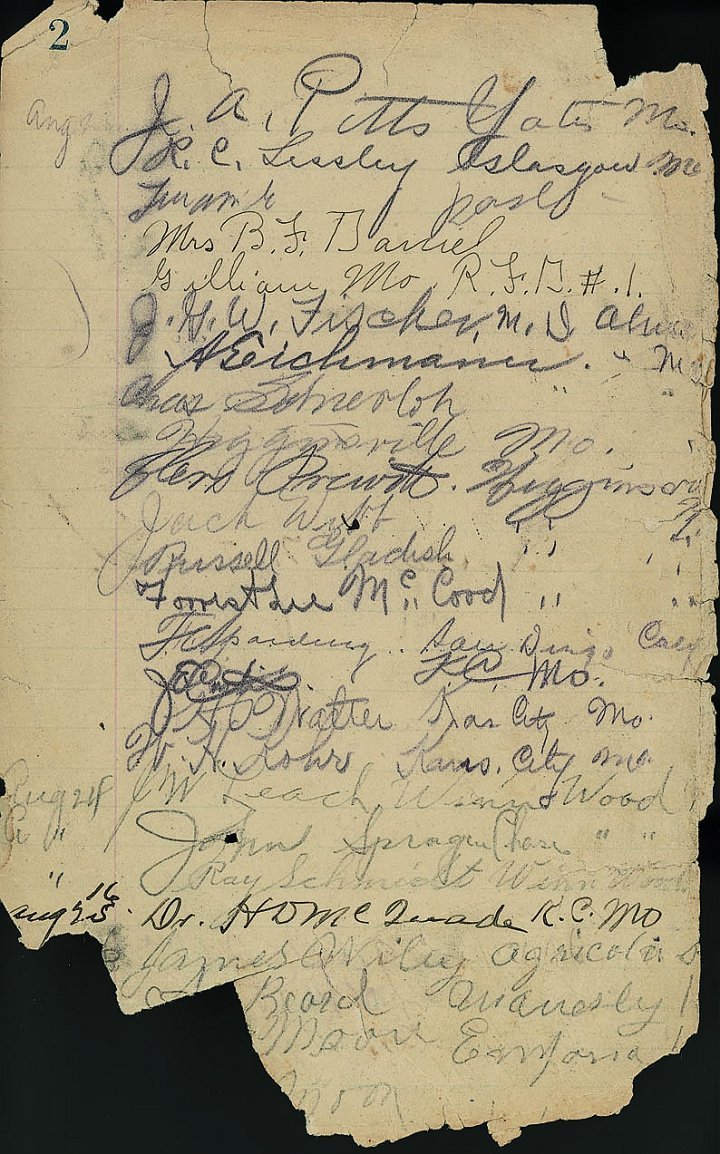 2
J. A. Potts Yates Mo.
R. C. Lessley Glasgow Mo
Mrs B. F. Daniel
Gilliam Mo R. F. D. #. 1.
J. G. W. Fischer, M. D Alma
A Eichmann . " Mo
Chas
Higginsville Mo.
Glen Prewitt. Higginsville
Jack Webb " "
Russell Gladish, " "
Forrest Lee McCord " "
F C Spaulding .. San Diego Calif
K C, Mo.
Walter Kas City Mo.
W. H. Rohrs Kans. City Mo.
Aug 24 Leach Winn Wood
" John Sprague Chase " "
" Ray Schmidt Winnwood
Aug 25 Dr. H D McQuade K. C. Mo
James Wiley Agricola
Beard Waverly
Moore Emporia
Moon